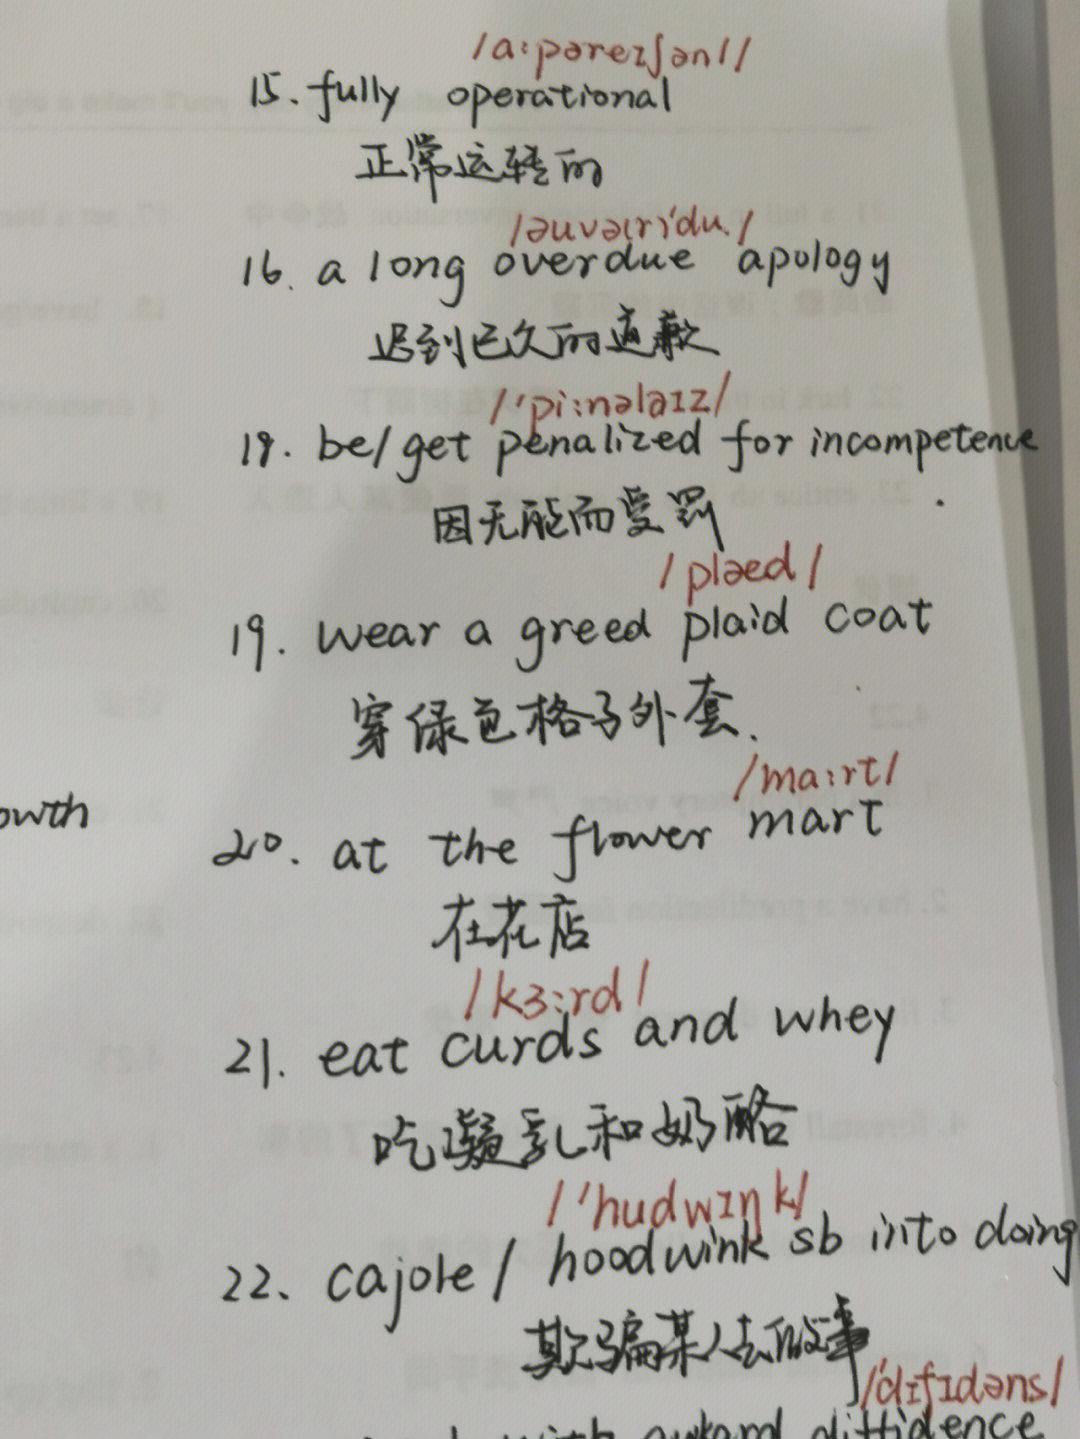 /a:pəreɪʃənl/
15. fully operational
正常运转的
/əuvə(r)'du:/
16. a long overdue apology
迟到已久的道歉
/'pi:nəlaɪz/
18. be/get penalized for incompetence
因无能而受罚
/plæd/
19. wear a greed plaid coat
穿绿色格子外套.
/ma:rt/
owth
20. at the flower mart
在花店
/kɜ:rd/
21. eat curds and whey
吃凝乳和奶酪
/'hudwɪŋk/
22. cajole / hoodwink sb into doing
欺骗某人去做事
/'dɪfɪdəns/
with diffidence